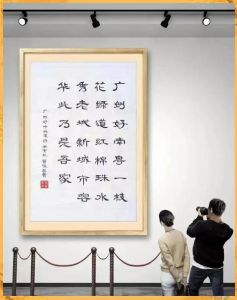 广州好南粤一枝
花绿道红棉珠水
秀老城新城市容
华此乃是吾家